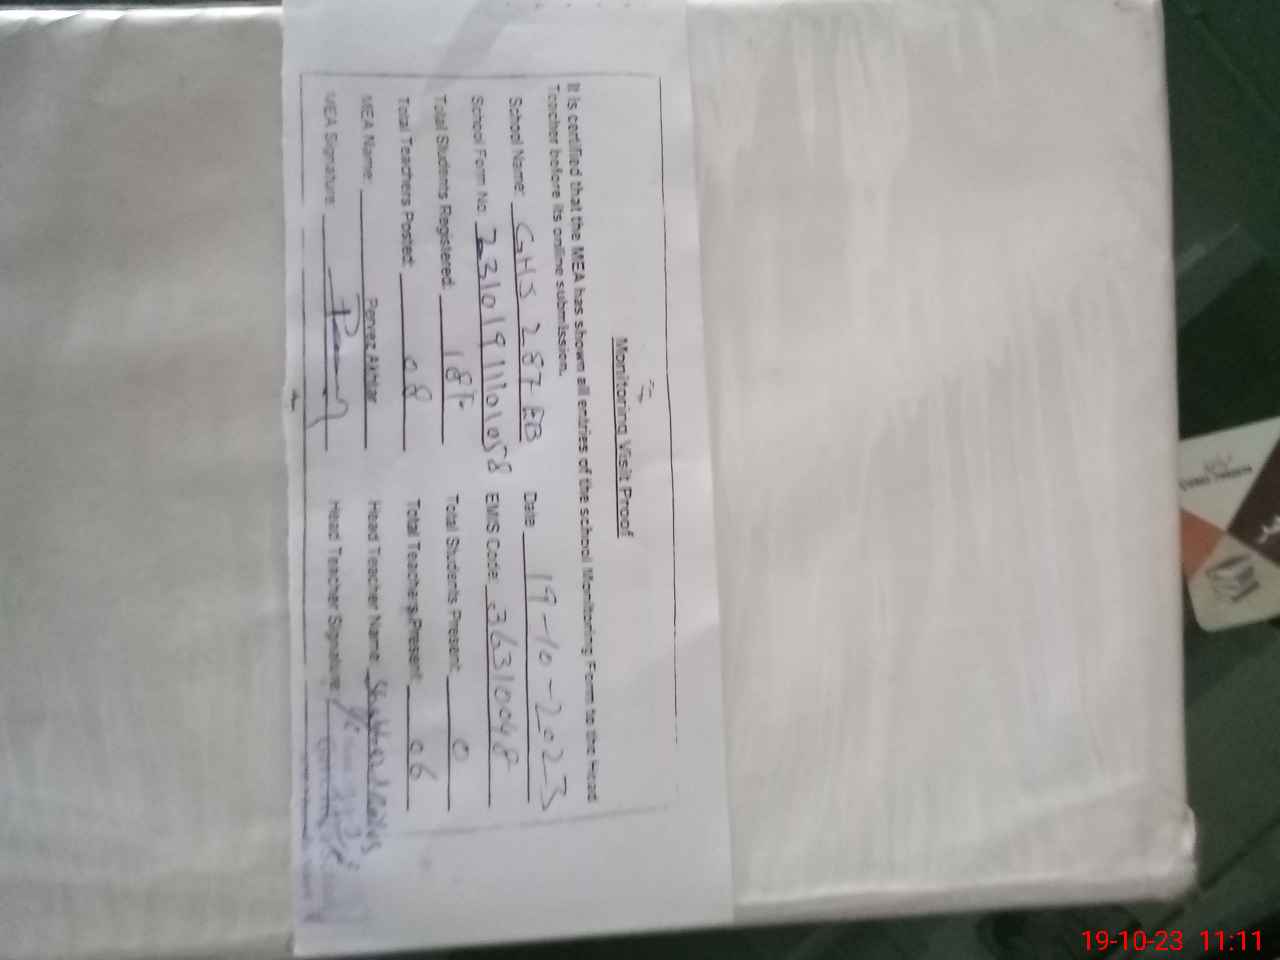 Monitoring Visit Proof
It is certified that the MEA has shown all entries of the school Monitoring Form to the Head
Teacher before its online submission.
School Name: GHS 287 EB Date 19-10-2023
School Form No: 23101911101058 EMIS Code: 36310048
Total Students Registered: 187 Total Students Present: 0
Total Teachers Posted: 08 Total Teachers Present: 06
MEA Name: Pervez Akhtar Head Teacher Name:
MEA Signature: Head Teacher Signature:
19-10-23 11:11